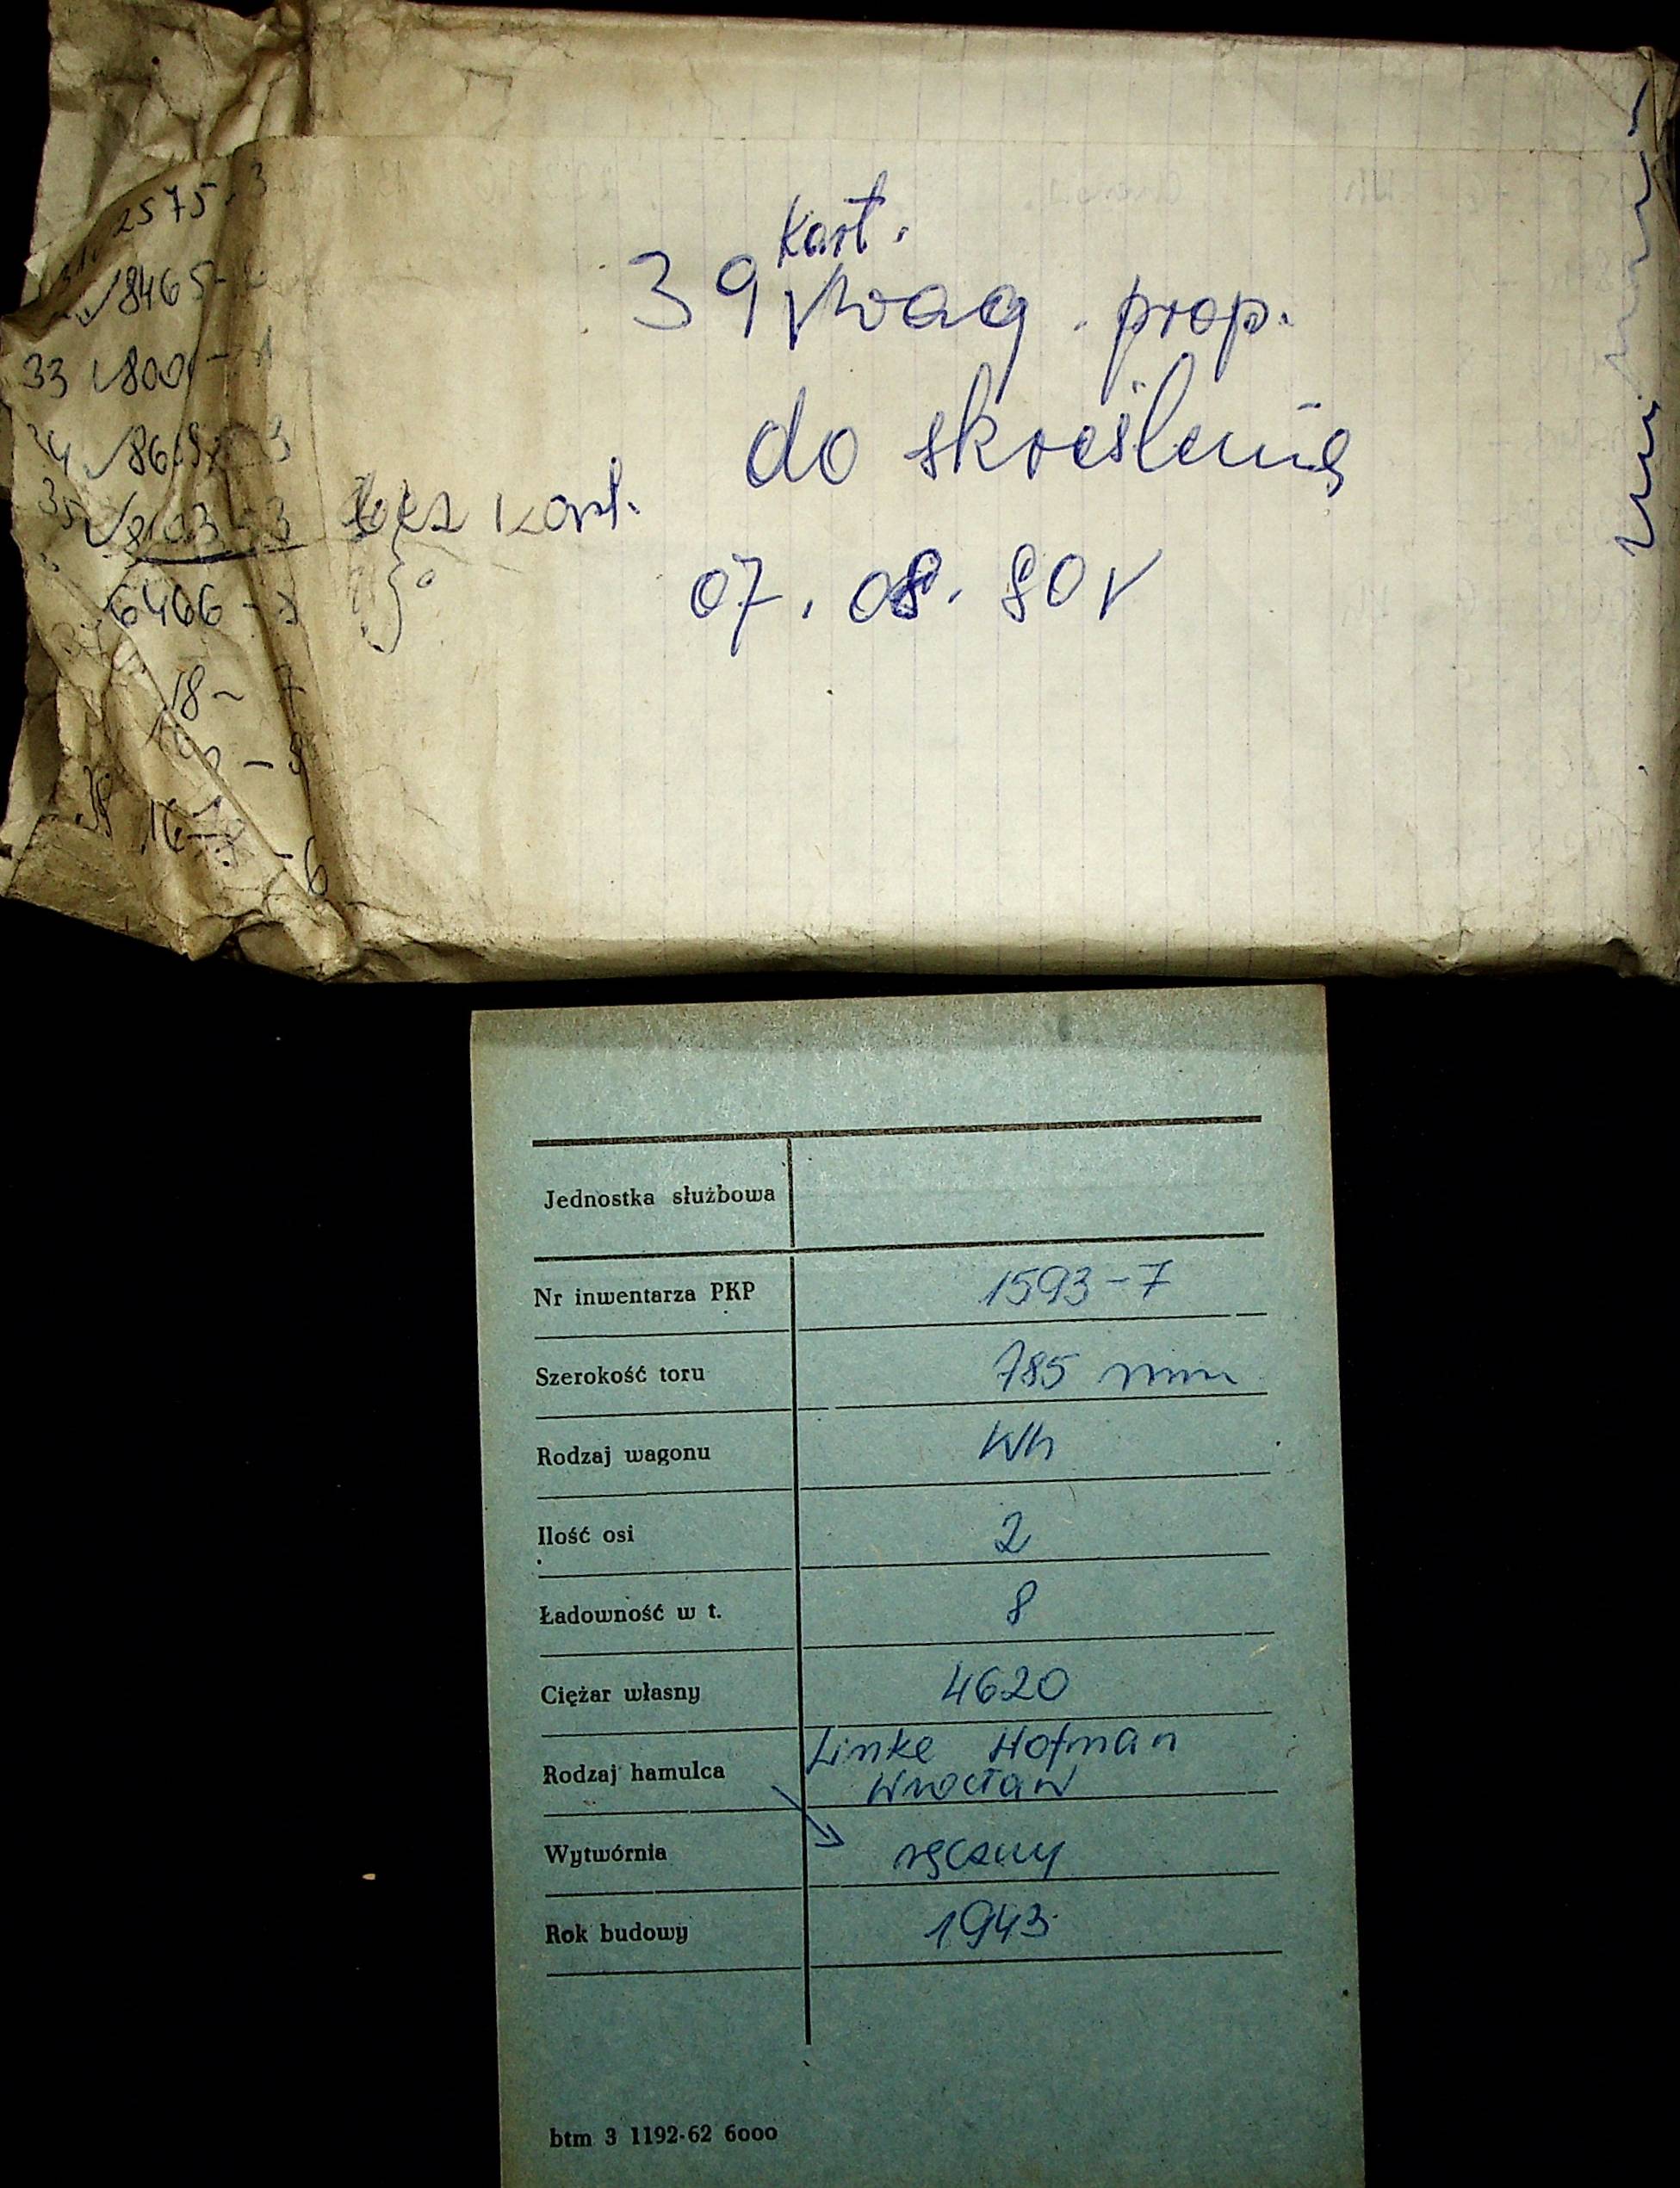 2575-3
8465-
33 800 - 1
34 86
35 8103-3 bez kart.
6466 -
18 - 7
- 6
Kart.
39 wag. prop.
do skreślenia
07. 08. 80 r
Jednostka służbowa
Nr inwentarza PKP 1593-7
Szerokość toru 785 mm
Rodzaj wagonu Wh
Ilość osi 2
Ładowność w t. 8
Ciężar własny 4620
Rodzaj hamulca Linke Hofman
Wrocław
Wytwórnia ręczny
Rok budowy 1943
btm 3 1192-62 6000